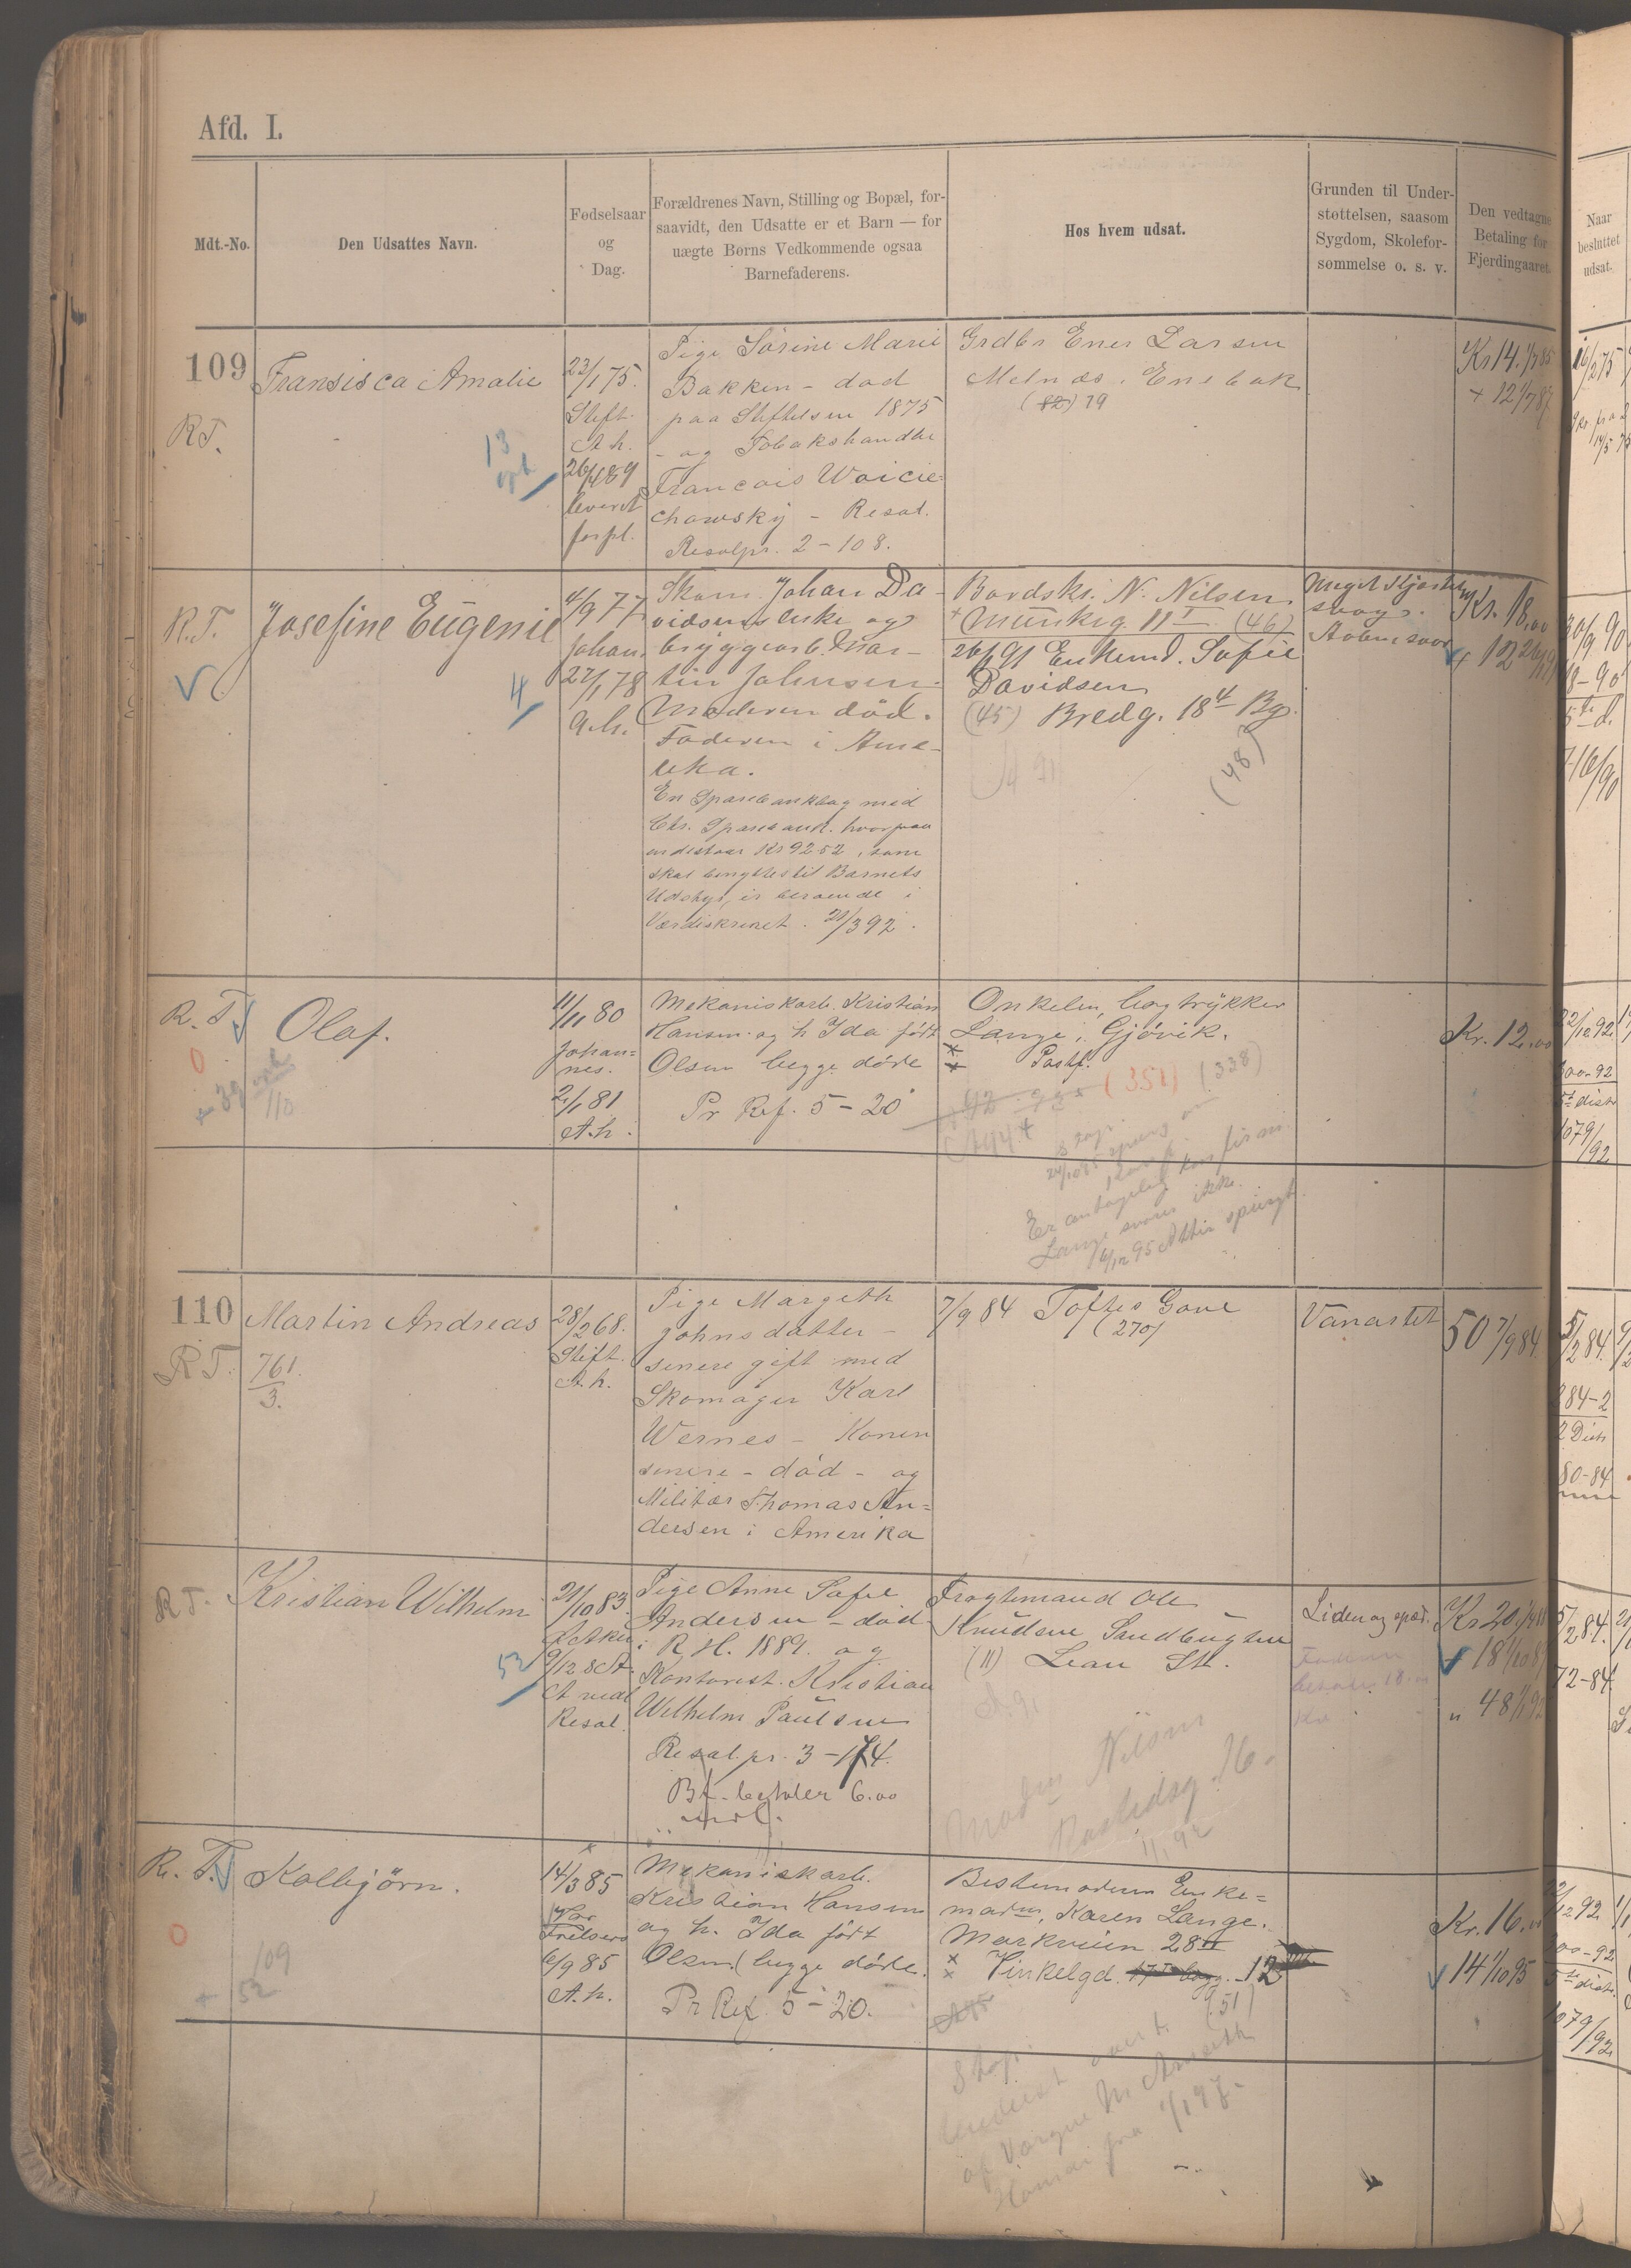 Afd. I.
Mdt.-No.
Den Udsattes Navn.
Fødselsaar
og
Dag.
Forældrenes Navn, Stilling og Bopæl, for-
saavidt, den Udsatte er et Barn — for
uægte Børns Vedkommende ogsaa
Barnefaderens.
Hos hvem udsat.
Grunden til Under-
støttelsen, saasom
Sygdom, Skolefor-
sømmelse o. s. v.
Den vedtagne
Betaling for
Fjerdingaaret.
Naar
besluttet
udsat.
109
R.T.
Fransisca Amalie
13
22/1 75.
Stift.
A.h.
26/4 89
leveret
forpl.
Pige Sørine Marie
Bakken - død
paa Stiftelsen 1875
- og Tobakshandler
Francois Woicie-
chowsky - Resol.
Resolpr. 2-108.
Grdbr Ener Larsen
Melnæs. Enebak
(82) 79
Kr 14. 1/7 85
+ 12 1/7 87
16/2 75
R.T.
Josefine Eugenie
4
4/9 77
Johan.
27/1 78
a.h.
Skom. Johan Da-
vidsens enke og
bryggearb. Mar-
tin Johnsen.
Moderen død.
Faderen i Ame-
rika.
En Sparebankbog med
Chr. Sparebank. hvorpaa
indestaar Kr 92.52, som
skal benyttes til Barnets
Udstyr, er beroende i
Værdiskrinet. 21/3 92.
Bordsk. N. Nilsen
+ Munkeg. 11 I (46)
26/6 91 Enkemd. Sofie
Davidsen
(45) Bredg. 18 4 Bg.
(48)
Meget kjertel-
svag.
Aabne saar
Kr. 18,00
+ 12
30/9 90
R.T.
Olaf.
0
110
11/11 80
Johan-
nes.
2/1 81
A.h.
Mekaniskarb. Kristian
Hansen og h. Ida født
Olsen begge døde
Pr Ref. 5-20
Onkelen, bogtrykker
Lange i Gjøvik.
Postf.
(351) (338)
Er antagelig konfirm.
Lange svarer ikke.
6/12 95 Atter spurgt.
Kr. 12.00
22/12 92
5te distr.
1079/92
110
R.T.
Martin Andreas
761.
3.
28/2 68.
Stift.
A.h.
Pige Margeth
Johnsdatter -
senere gift med
Skomager Karl
Wernes - Konen
senere - død - og
Militær Thomas An-
dersen i Amerika
7/9 84 Toftes Gave
(270)
Vanartet
50 7/9 84
5/2 84.
84-2
2 Distr
80-84
R.T.
Kristian Wilhelm
52
21/10 83.
Resol.
Pige Anne Sofie
Andersen - død
i R.H. 1889. og
Kontorist Kristian
Wilhelm Paulsen
Resol. pr. 3-174.
Bf. betaler 6.00
mdl.
Fragtemand Ole
Knudsen Sandbugten
(11) Lean St.
Madm Nilsen
1/1 92
Liden og spæd.
Faderen
betaler 18.00
Kr 20
18 1/10 87
" 48 1/1 92
5/2 84.
72-84
R.T.
Kolbjørn.
0
109
52
14/3 85
Vor
Frelsers
6/9 85
A.h.
Mekaniskarb.
Kristian Hansen
og h. Ida født
Olsen (begge døde.
Pr Ref. 5-20.
Bestemoderen Enke-
madm, Karen Lange.
Markveien 28 II
Vinkelgd. 12
(51)
Kr. 16.00
14 1/10 95
5te distr.
1079/92